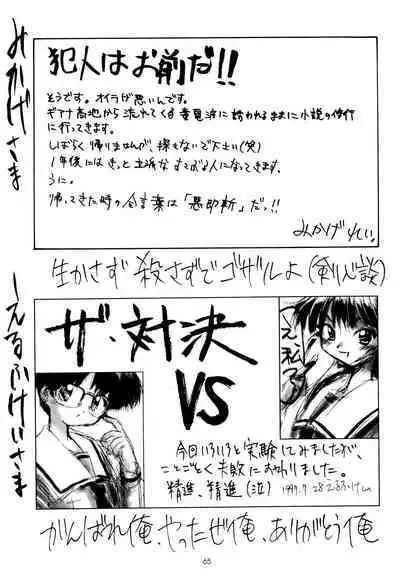 みかげさま
犯人はお前だ!!
そうです。オイラが悪いんです。
ギアナ高地から流れてくる毒電波に誘われるままに小説の修行
に行ってきます。
しばらく帰りませんが、探さないで下さい(笑)
1年後にはきっと立派な
人になってきます。
うに。
帰ってきた時の合言葉は「悪即斬」だっ!!
みかげれい
生かさず殺さずでゴザルよ(剣心談)
ザ・対決
VS
え、私っ
今回いろいろと実験してみましたが、
ことごとく失敗におわりました。
精進、精進(泣)
1997.7.28
がんばれ俺、やったぜ俺、ありがとう俺
65